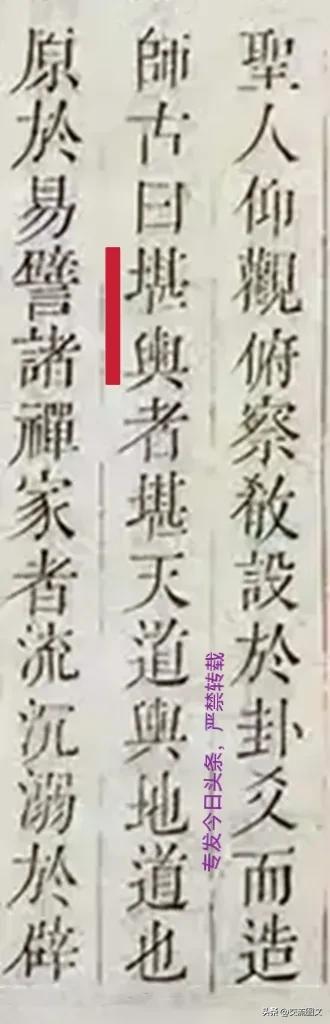 聖人仰觀俯察教設於卦爻而造
師古曰堪輿者堪天道輿地道也
原於易譬諸禪家者流沉溺於辟
专发今日头条，严禁转载